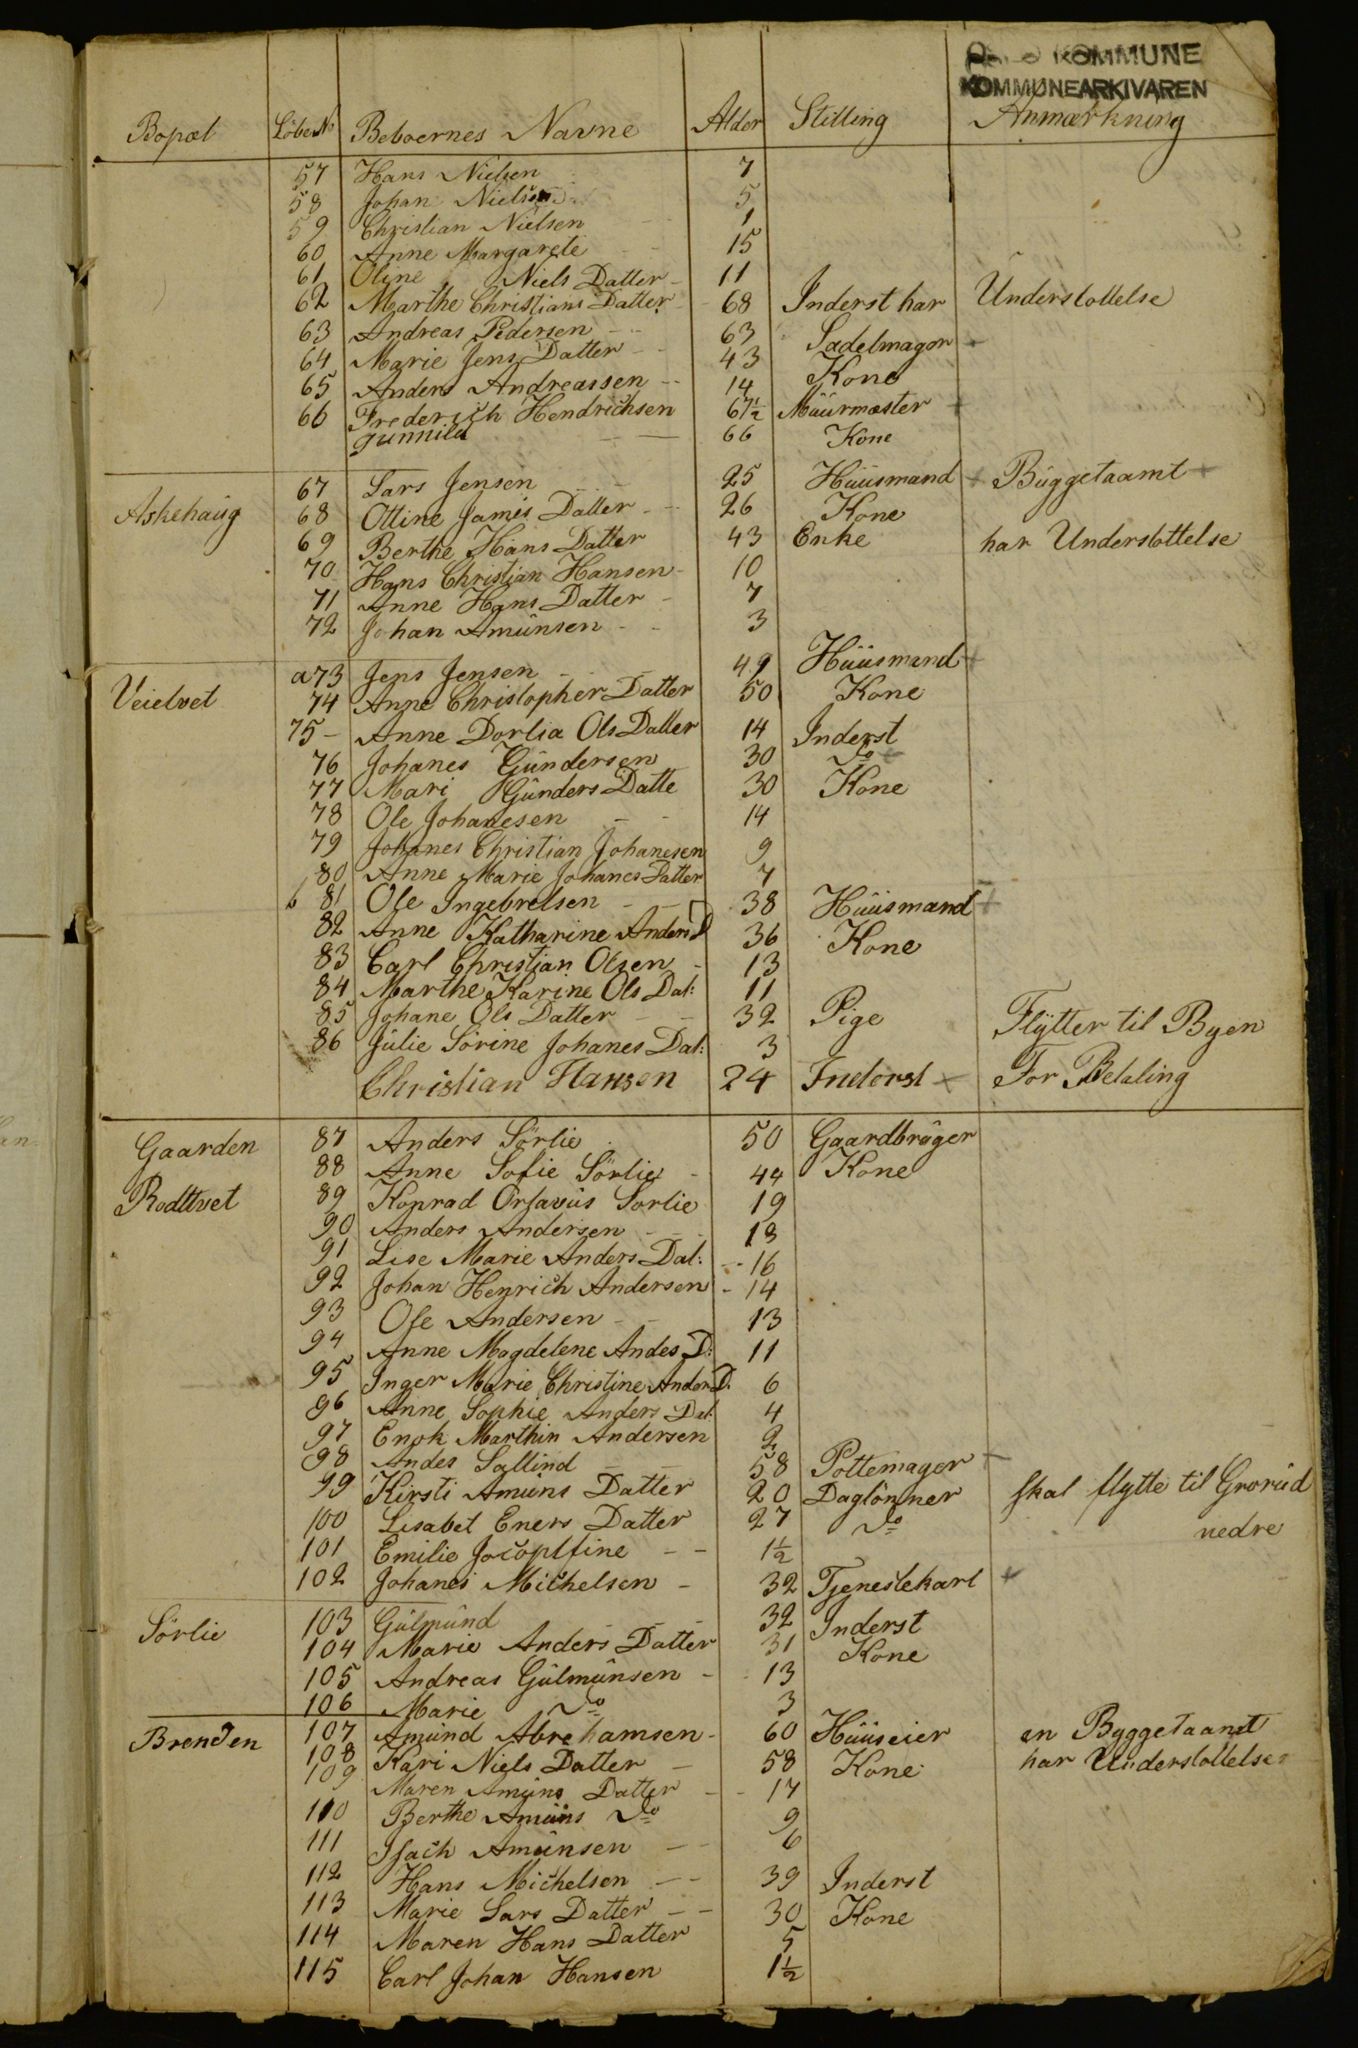 KOMMUNE
KOMMUNEARKIVAREN
Bopæl Löbe№ Beboernes Navne Alder Stilling Anmærkning
57 Hans Nielsen 7
58 Johan Nielsen 5
59 Christian Nielsen 1
60 Anne Margarete 15
61 Oline Niels Datter 11
62 Marthe Christians Datter 68 Inderst har Understottelse
63 Andreas Pedersen 63 Sadelmager +
64 Marie Jens Datter 43 Kone
65 Anders Andreassen 14
66 Frederich Hendrichsen 67½ Müürmester +
Gunnild 66 Kone
Askehaüg 67 Lars Jensen 25 Hüüsmand + Büggetaamt +
68 Ottine James Datter 26 Kone
69 Berthe Hans Datter 43 Enke har Understottelse
70 Hans Christian Hansen 10
71 Anne Hans Datter 7
72 Johan Amünsen 3
Veietvet a 73 Jens Jensen 49 Hüüsmand +
74 Anne Christopher Datter 50 Kone
75 Anne Dorlia Ols Datter 14 Inderst
76 Johanes Gündersen 30 Do +
77 Mari Günders Datte 30 Kone
78 Ole Johanesen 14
79 Johanes Christian Johanesen 9
80 Anne Marie Johanes Datter 7
b 81 Ole Ingebretsen 38 Hüüsmand +
82 Anne Katharine Anders D 36 Kone
83 Carl Christian Olsen 13
84 Marthe Karine Ols Dat: 11
85 Johane Ols Datter 32 Pige Flÿtter til Byen
86 Jülie Sörine Johanes Dat: 3
Christian Hansen 24 Inderst + For Betaling
Gaarden 87 Anders Sörlie 50 Gaardbrüger
88 Anne Sofie Sörlie 44 Kone
Rodtvet 89 Konrad Orfavüs Sorlie 19
90 Anders Andersen 18
91 Lise Marie Anders Dat: 16
92 Johan Henrich Andersen 14
93 Ole Andersen 13
94 Anne Magdelene Andes D: 11
95 Inger Marie Christine Ander D: 6
96 Anne Sophie Anders Dat: 4
97 Enok Marthin Andersen 2
98 Andes Sallind 58 Pottemager +
99 Kirsti Amüns Datter 20 Daglönner skal flytte til Grorüd
100 Lisabet Eners Datter 27 Do nedre
101 Emilie 1½
102 Johanes Michelsen 32 Tjenestekarl +
Sörlie 103 Gülmünd 32 Inderst
104 Marie Anders Datter 31 Kone
105 Andreas Gülmünsen 13
106 Marie Do 3
Brenden 107 Amünd Abrehamsen 60 Hüüseier en Byggetaamt
108 Kari Niels Datter 58 Kone har Understottelse
109 Maren Amüns Datter 17
110 Berthe Amüns Do 9
111 Isach Amünsen 6
112 Hans Michelsen 39 Inderst
113 Marie Lars Datter 30 Kone
114 Maren Hans Datter 5
115 Carl Johan Hansen 1½